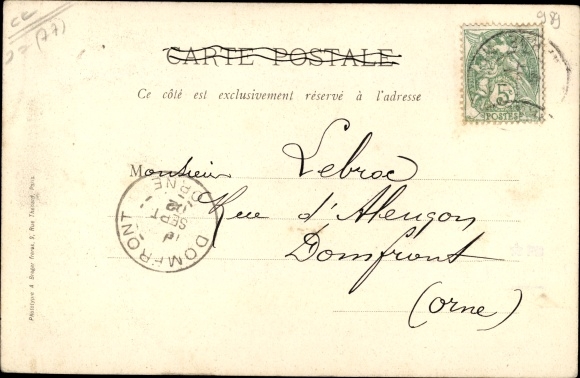 CC
(77)
989
CARTE POSTALE
Ce côté est exclusivement réservé à l'adresse
5c
POSTES
Monsieur Lebroc
Rue d'Alençon
Domfront
(Orne)
DOMFRONT
SEPT
ORNE
Phototypie A. Berger frères, 9, Rue Thénard, Paris